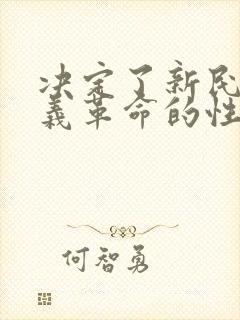 决定了新民
义革命的性
何智勇